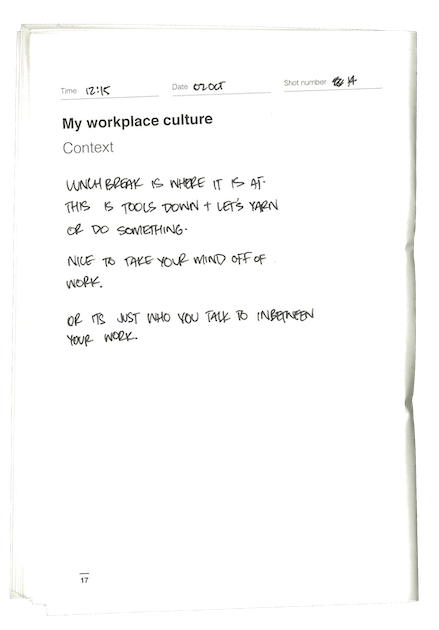 Time 12:15 Date 02 OCT Shot number 14
My workplace culture
Context
LUNCH BREAK IS WHERE IT IS AT.
THIS IS TOOLS DOWN + LET'S YARN
OR DO SOMETHING.
NICE TO TAKE YOUR MIND OFF OF
WORK.
OR ITS JUST WHO YOU TALK TO INBETWEEN
YOUR WORK.
17